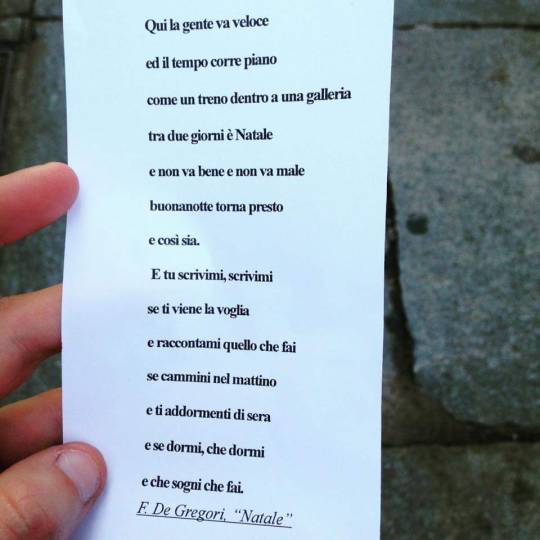 Qui la gente va veloce
ed il tempo corre piano
come un treno dentro a una galleria
tra due giorni è Natale
e non va bene e non va male
buonanotte torna presto
e così sia.
E tu scrivimi, scrivimi
se ti viene la voglia
e raccontami quello che fai
se cammini nel mattino
e ti addormenti di sera
e se dormi, che dormi
e che sogni che fai.
F. De Gregori, “Natale”